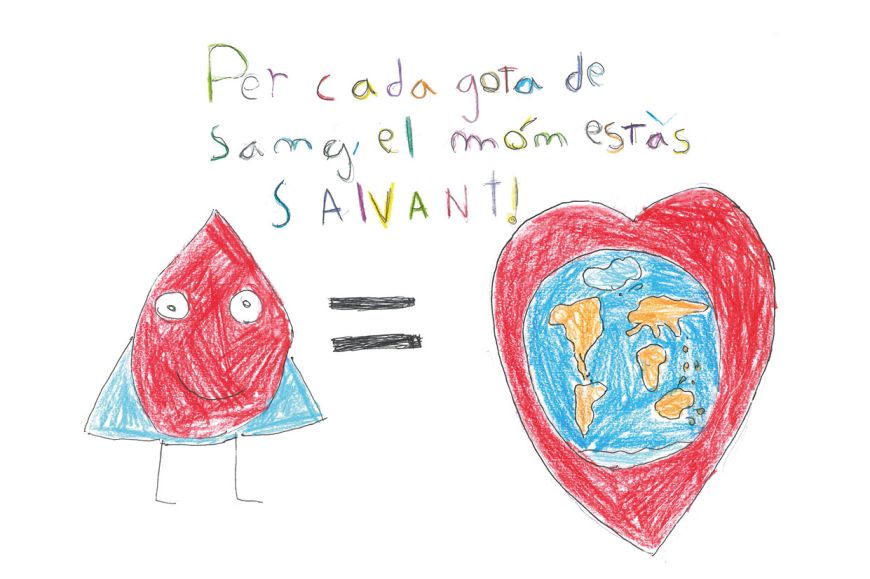 Per cada gota de
samg, el móm estàs
SAlVANT!